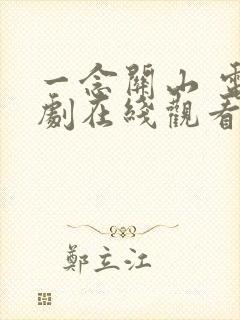 一念關山 電
劇在綫觀看
鄭立江